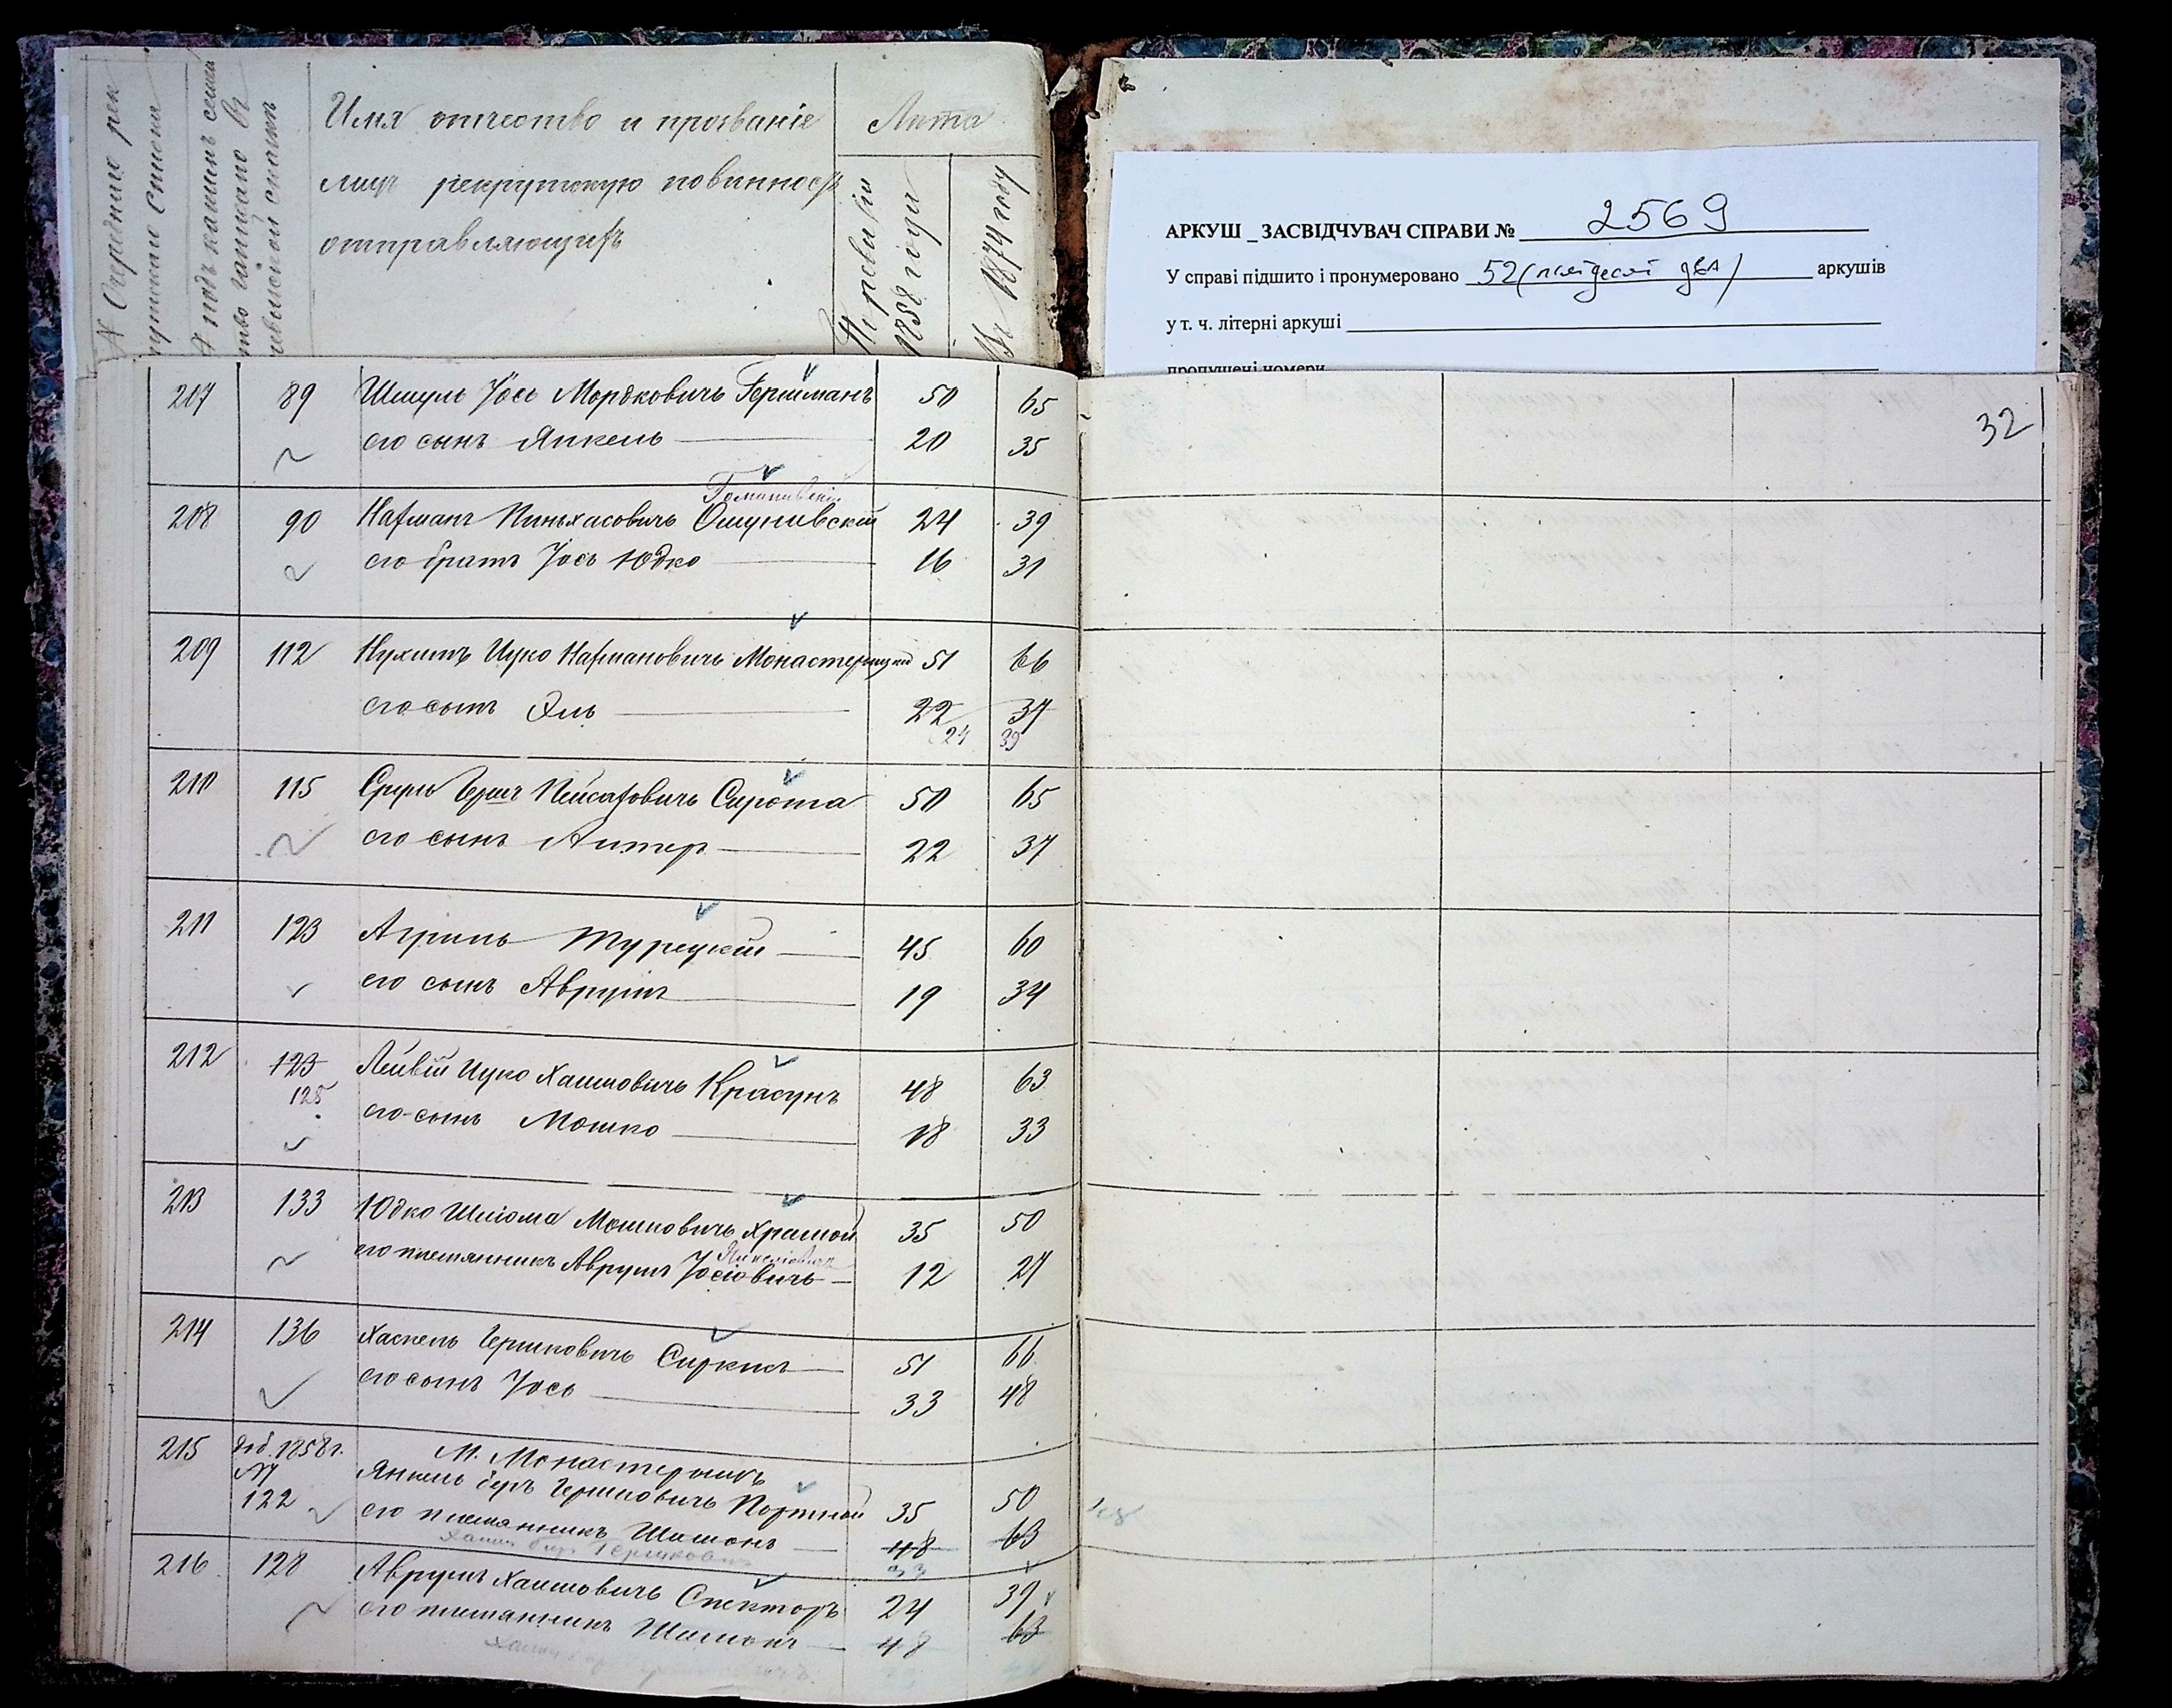 № Очередние рек
рутскаго списка
№ подъ каким семей
ство записано въ
ревизской сказкѣ
Имя отчество и прозваніе
лицъ рекрутскую повинность
отправляющихъ
Лѣта
По ревизіи
1858 года
Въ 1874 году
АРКУШ _ ЗАСВІДЧУВАЧ СПРАВИ № 2569
У справі підшито і пронумеровано 52 (пятдесят два) аркушів
у т. ч. літерні аркуші
пропущені номери
32
207 89 Шмуль Іось Мордковичъ Гершманъ 50 65
его сынъ Янкель 20 35
208 90 Нахманъ Пинхасовичъ Ошунивскій 24 39
его братъ Іось Юдко 16 31
209 112 Нухимъ Ицко Нахмановичъ Монастерецкій 51 66
его сынъ Эль 22 37
24 39
210 115 Сруль Гершъ Пейсаховичъ Сирота 50 65
его сынъ Алтеръ 22 37
211 123 Турецкій 45 60
его сынъ Аврумъ 19 34
212 123 Лейвій Ицко Хаимовичъ Красунъ 48 63
125
его сынъ Мошко 18 33
213 133 Юдко Шлiома Мошковичъ Храмой 35 50
Янкелiовичъ
его племянникъ Аврумъ Іосіовичъ 12 27
214 136 Хаскель Гершковичъ Сиркисъ 51 66
его сынъ Іось 33 48
215 доб. 1858 г. М. Монастерищъ
№ 122 Янкель Беръ Гершковичъ Портной 35 50
его племянникъ Шимонъ 48 63
Хаимъ Беръ Гершковичъ 33
48
216 128 Аврумъ Хаимовичъ Спекторъ 24 39
его племянникъ Шимонъ 48 63